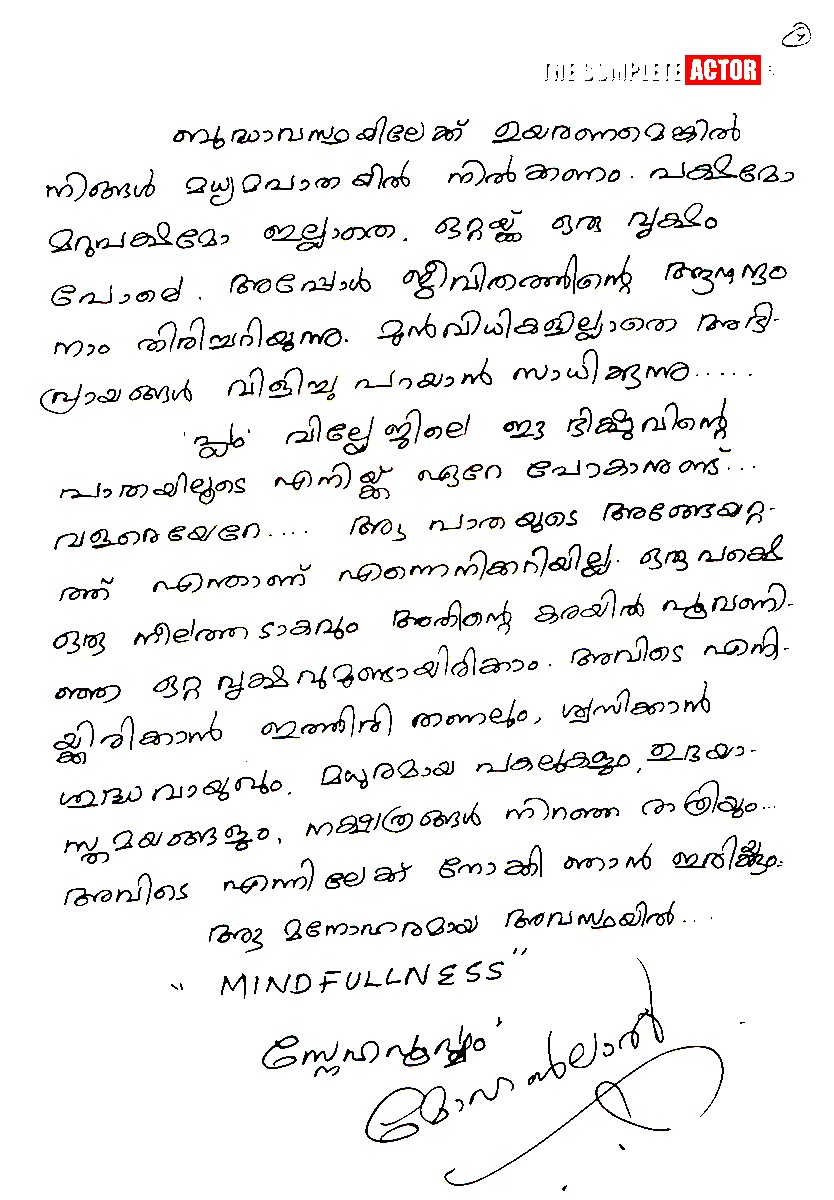 7
THE COMPLETE ACTOR
ബുദ്ധാവസ്ഥയിലേക്ക് ഉയരണമെങ്കിൽ
നിങ്ങൾ മധ്യമപാതയിൽ നിൽക്കണം. പക്ഷമോ
മറുപക്ഷമോ ഇല്ലാതെ. ഒറ്റയ്ക്ക് ഒരു വൃക്ഷം
പോലെ. അപ്പോൾ ജീവിതത്തിന്റെ ആനന്ദം
നാം തിരിച്ചറിയുന്നു. മുൻവിധികളില്ലാതെ അഭി-
പ്രായങ്ങൾ വിളിച്ചു പറയാൻ സാധിക്കുന്നു.....
'പ്ലം' വില്ലേജിലെ ഈ ഭിക്ഷുവിന്റെ
പാതയിലൂടെ എനിയ്ക്ക് ഏറേ പോകാനുണ്ട്...
വളരെയേറേ.... ആ പാതയുടെ അങ്ങേയറ്റ-
ത്ത് എന്താണ് എന്നെനിക്കറിയില്ല. ഒരു പക്ഷെ
ഒരു നീലത്തടാകവും അതിന്റെ കരയിൽ പൂവണി-
ഞ്ഞ ഒറ്റ വൃക്ഷവുമുണ്ടായിരിക്കാം. അവിടെ എനി-
യ്ക്കിരിക്കാൻ ഇത്തിരി തണലും, ശ്വസിക്കാൻ
ശുദ്ധവായുവും. മധുരമായ പകലുകളും, ഉദയാ-
സ്തമയങ്ങളും, നക്ഷത്രങ്ങൾ നിറഞ്ഞ രാത്രിയും...
അവിടെ എന്നിലേക്ക് നോക്കി ഞാൻ ഇരിക്കും.
ആ മനോഹരമായ അവസ്ഥയിൽ...
"MINDFULLNESS"
സ്നേഹപൂർവ്വം
മോഹൻലാൽ